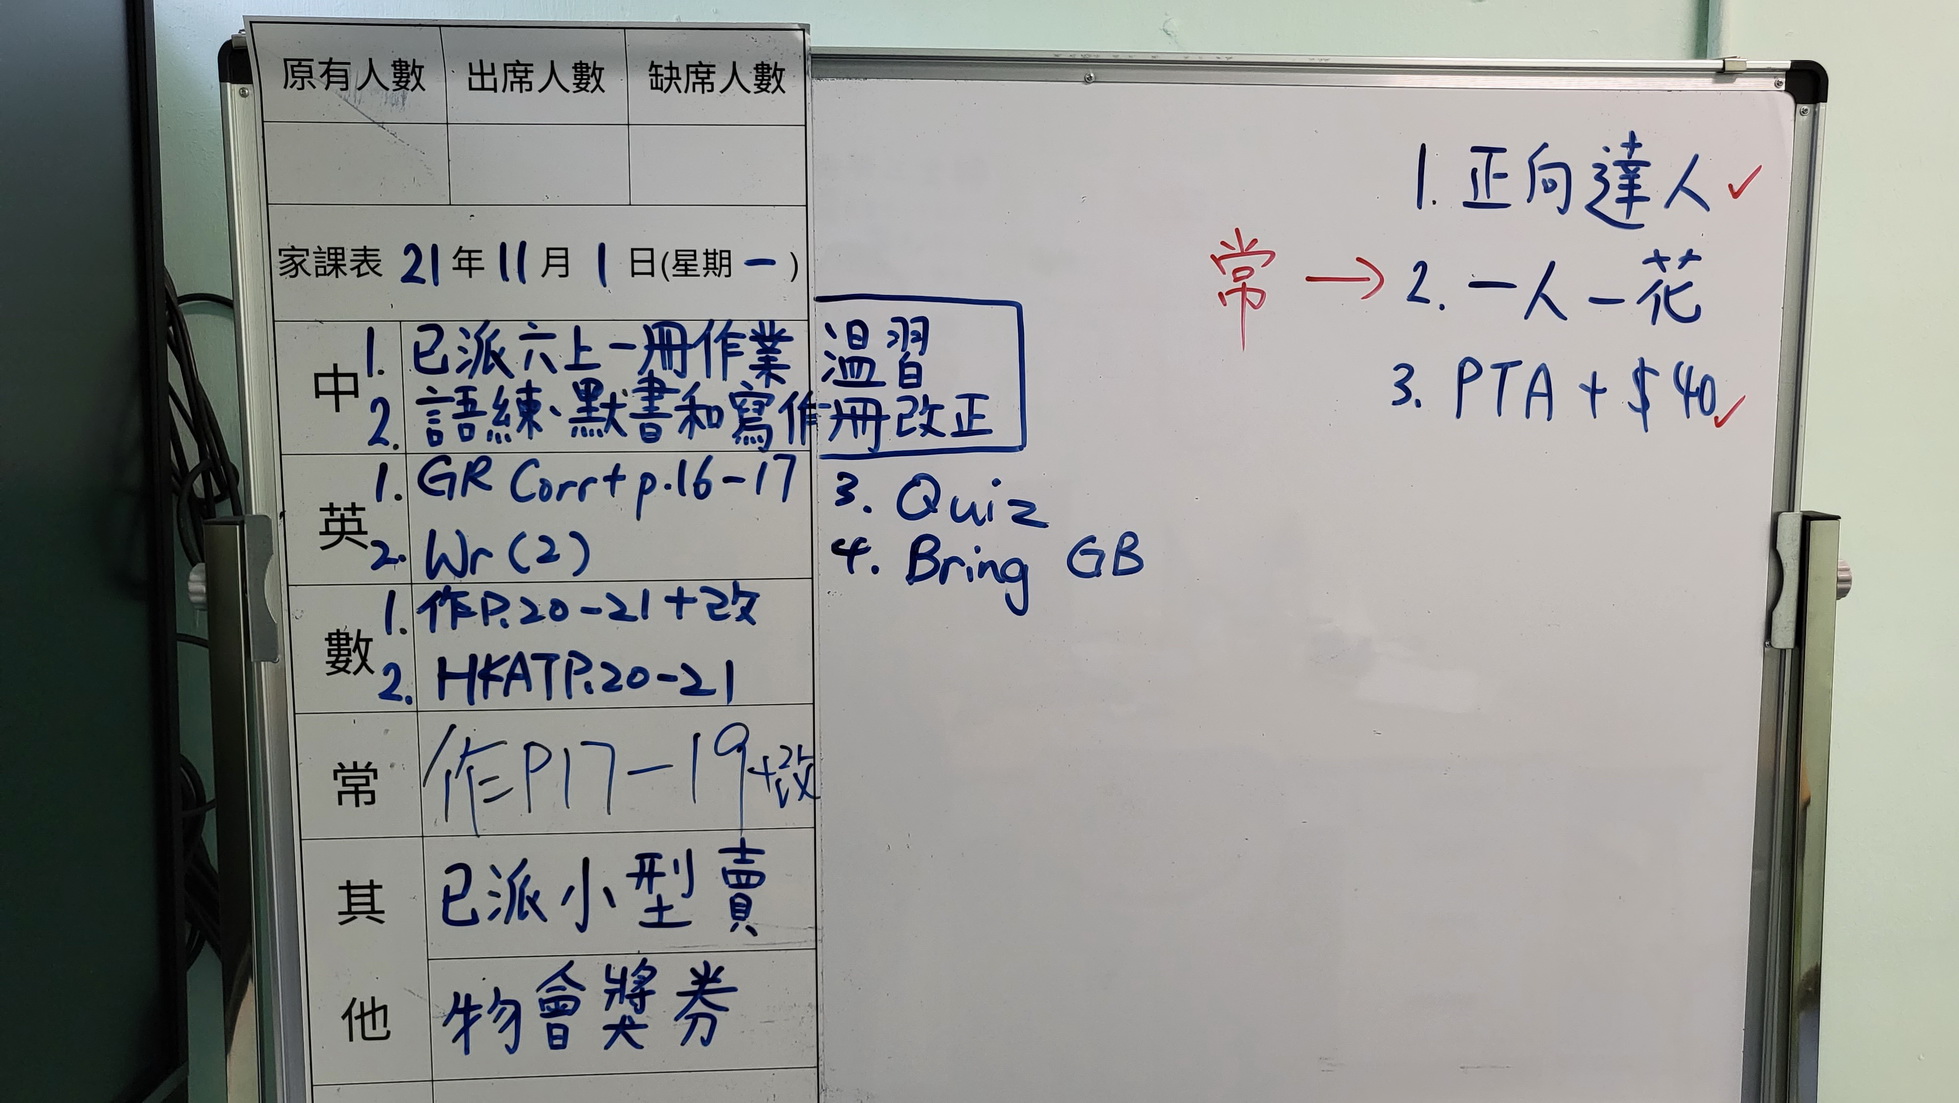 原有人數 出席人數 缺席人數
家課表 21年11月1日(星期一)
中
1. 已派六上一冊作業溫習
2. 語練、默書和寫作冊改正
英
1. GR Corr+p.16-17
2. Wr (2)
3. Quiz
4. Bring GB
數
1. 作P.20-21+改
2. HKATP.20-21
常
作P17-19+改
其他
已派小型賣
物會獎券
1. 正向達人✓
常 → 2. 一人一花
3. PTA + $40✓